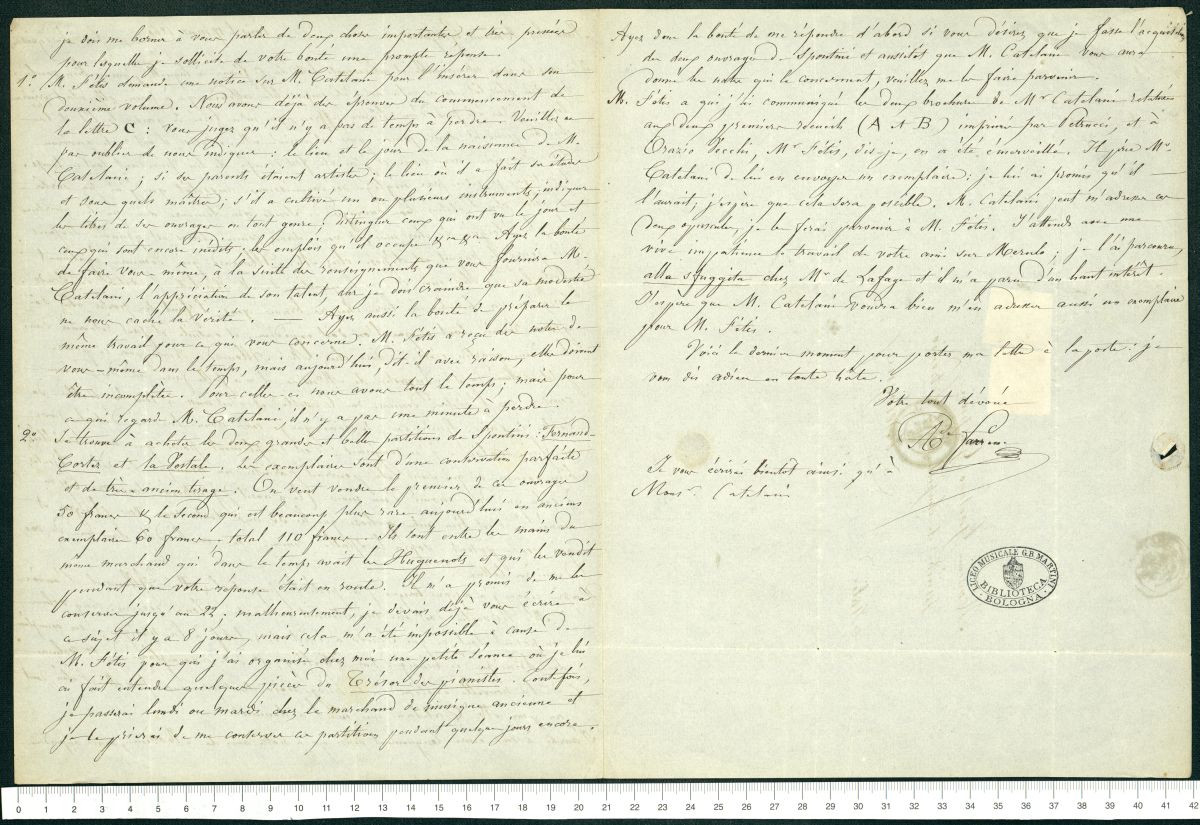 je dois me borner à vous parler de deux choses importantes et très pressées
pour lesquelles je sollicite de votre bonté une prompte réponse
1.° M. Fétis demande une notice sur M. Catelani pour l'insérer dans son
deuxième volume. Nous avons déjà des épreuves du commencement de
la lettre C : vous jugez qu'il n'y a pas de temps à perdre. Veuillez ne
pas oublier de nous indiquer : le lieu et le jour de la naissance de M.
Catelani ; si ses parents étaient artistes ; le lieu où il a fait ses études
et sous quels maîtres ; s'il a cultivé un ou plusieurs instruments, indiquer
les titres de ses ouvrages en tout genre ; distinguer ceux qui ont vu le jour et
ceux qui sont encore inédits ; les emplois qu'il occupe &a &a Ayez la bonté
de faire vous même, à la suite des renseignements que vous fournira M.
Catelani, l'appréciation de son talent, car je dois craindre que sa modestie
ne nous cache la vérité. — Ayez aussi la bonté de préparer le
même travail pour ce qui vous concerne. M. Fétis a reçu des notes de
vous-même dans le temps, mais aujourd'hui, dit-il avec raison, elles doivent
être incomplètes. Pour celles-ci nous avons tout le temps ; mais pour
ce qui regarde M. Catelani, il n'y a pas une minute à perdre.
2.° Je trouve à acheter les deux grandes et belles partitions de Spontini : Fernand-
Cortez et la Vestale. Les exemplaires sont d'une conservation parfaite
et de très-ancien tirage. On veut vendre le premier de ces ouvrages
50 francs & le second qui est beaucoup plus rare aujourd'hui en anciens
exemplaires 60 francs. total 110 francs. Ils sont entre les mains du
même marchand qui dans le temps avait les Huguenots et qui les vendit
pendant que votre réponse était en route. Il m'a promis de me les
conserver jusqu'au 22 ; malheureusement, je devais déjà vous écrire à
ce sujet il y a 8 jours, mais cela m'a été impossible à cause de
M. Fétis pour qui j'ai organisé chez moi une petite séance où je lui
ai fait entendre quelques pièces du Trésor des pianistes. Toutefois,
je passerai lundi ou mardi chez le marchand de musique ancienne et
je le prierai de me conserver ces partitions pendant quelques jours encore.
Ayez donc la bonté de me répondre d'abord si vous désirez que je fasse l'acquisition
des deux ouvrages de Spontini et aussitôt que M. Catelani vous aura
donné les notes qui le concernent, veuillez me les faire parvenir.
M. Fétis a qui j'ai communiqué les deux brochures de Mr Catelani relatives
aux deux premiers recueils (A et B) imprimés par Petrucci, et à
Orazio Vecchi, Mr Fétis, dis-je, en a été émerveillé. Il prie Mr.
Catelani de lui en envoyer un exemplaire : je lui ai promis qu'il
l'aurait, j'espère que cela sera possible. M. Catelani peut m'adresser ces
deux opuscules, je les ferai parvenir à M. Fétis. J'attends avec une
vive impatience le travail de votre ami sur Merulo ; je l'ai parcouru
alla sfuggita chez Mr de Lafage et il m'a paru d'un haut intérêt.
J'espère que M. Catelani voudra bien m'en adresser aussi un exemplaire
pour M. Fétis.
Voici le dernier moment pour porter ma lettre à la poste : je
vous dis adieu en toute hâte.
Votre tout dévoué
Ae Farrenc
Je vous écrirai bientôt ainsi qu'à
Monsr. Catelani
LICEO MUSICALE G.B. MARTINI
BIBLIOTECA
BOLOGNA
0 1 2 3 4 5 6 7 8 9 10 11 12 13 14 15 16 17 18 19 20 21 22 23 24 25 26 27 28 29 30 31 32 33 34 35 36 37 38 39 40 41 42